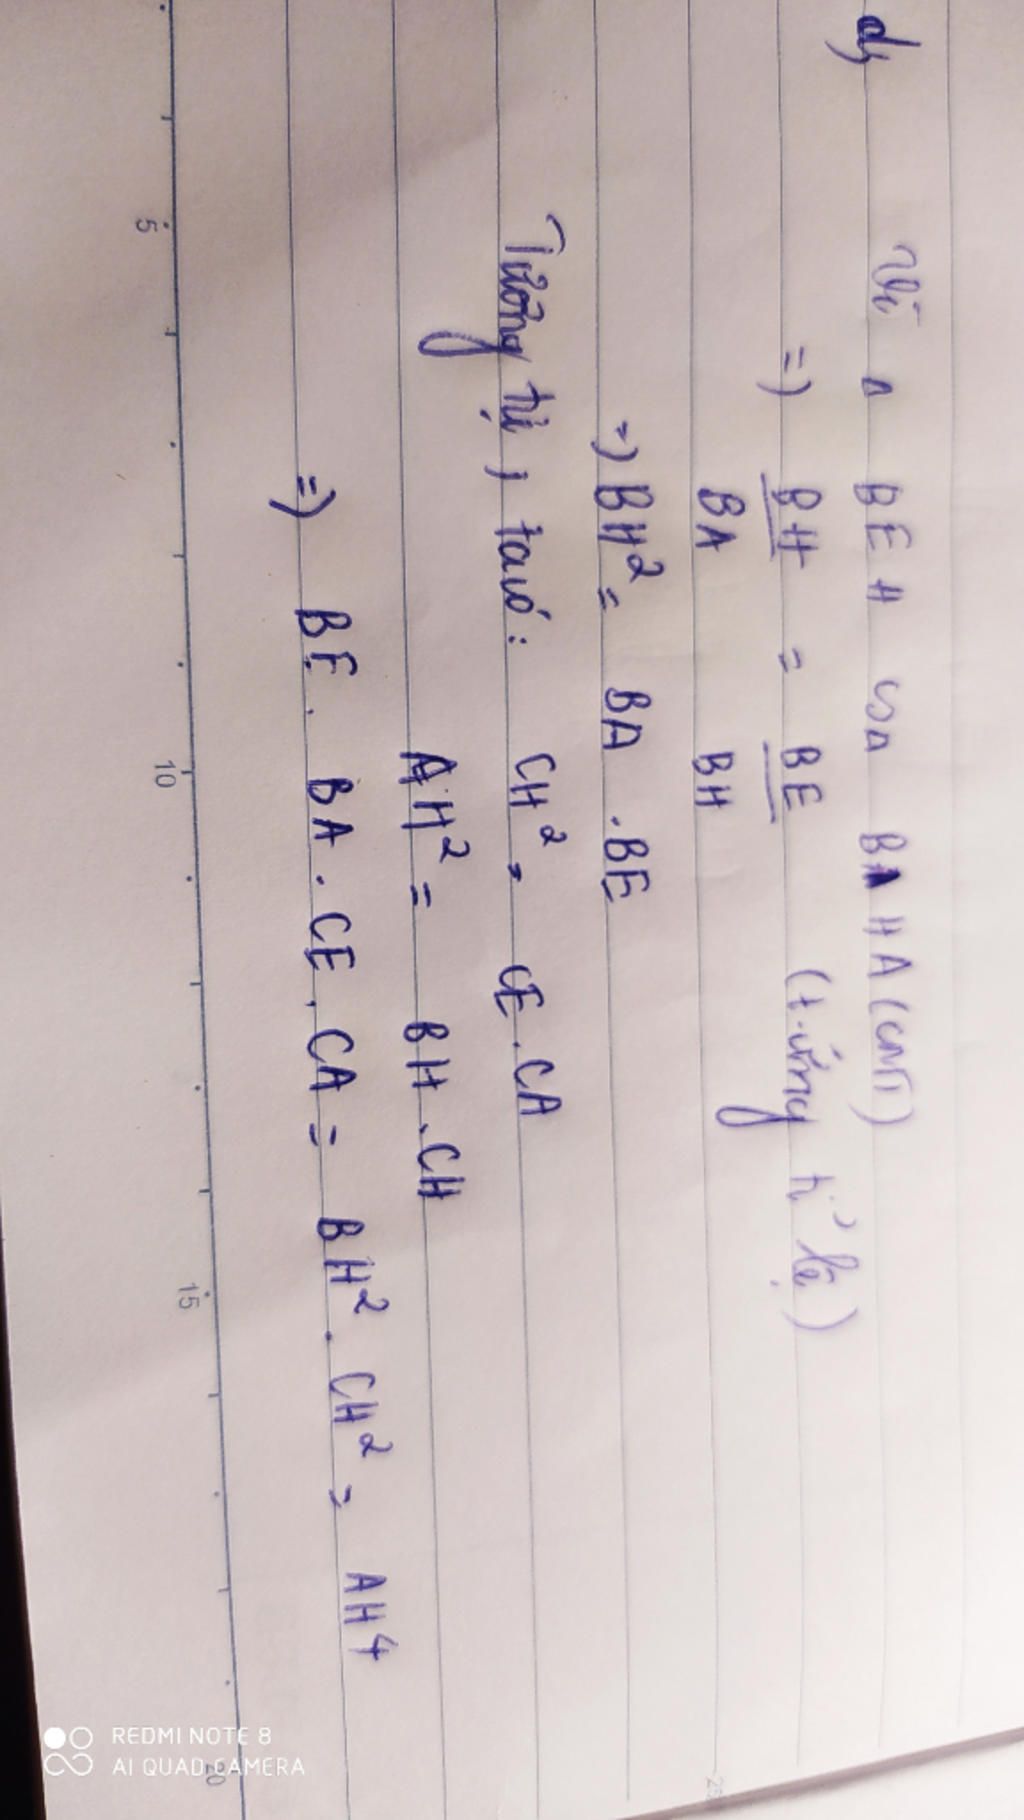 d,
Vì Δ BEH ∽Δ BHA (cmt)
=) BH/BA = BE/BH (t.ứng tỉ lệ)
=) BH² = BA . BE
Tương tự, ta có: CH² = CE . CA
AH² = BH . CH
=) BE . BA . CE . CA = BH² . CH² = AH⁴
5
10
15
20
25
REDMI NOTE 8
AI QUAD CAMERA